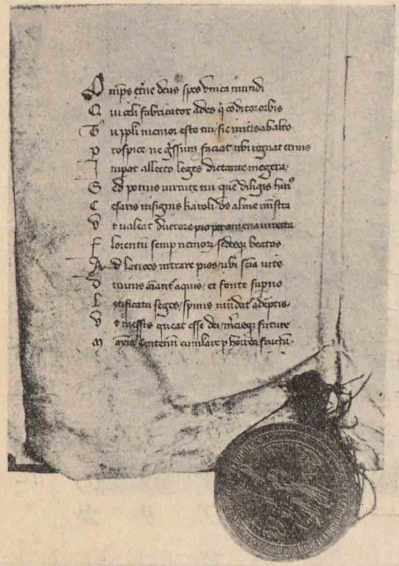 Omps eterne deus spes vnica mundi
Qui celi fabricator ades q conditor orbis
Tu ppli memor esto tui / sic mitis ab alto
Prospice ne gssum faciat ubi regnat erinis
Impat allecto leges dictante megera
Sed potius virtute tui que diligis hui9
Cesaris insignis karoli ds alme mistra
Vt valeat ductore pio per amena vireta
Florentu semp nemor sedesq beatas
Ad latices intrare pios / ubi seia vite
Diuinis aiant aquis / et fonte supno
Letificata seges / spinis mudat adeptis
Vt messis queat esse dei / mcisq future
Maxia centenu cumulare p horrea fructu